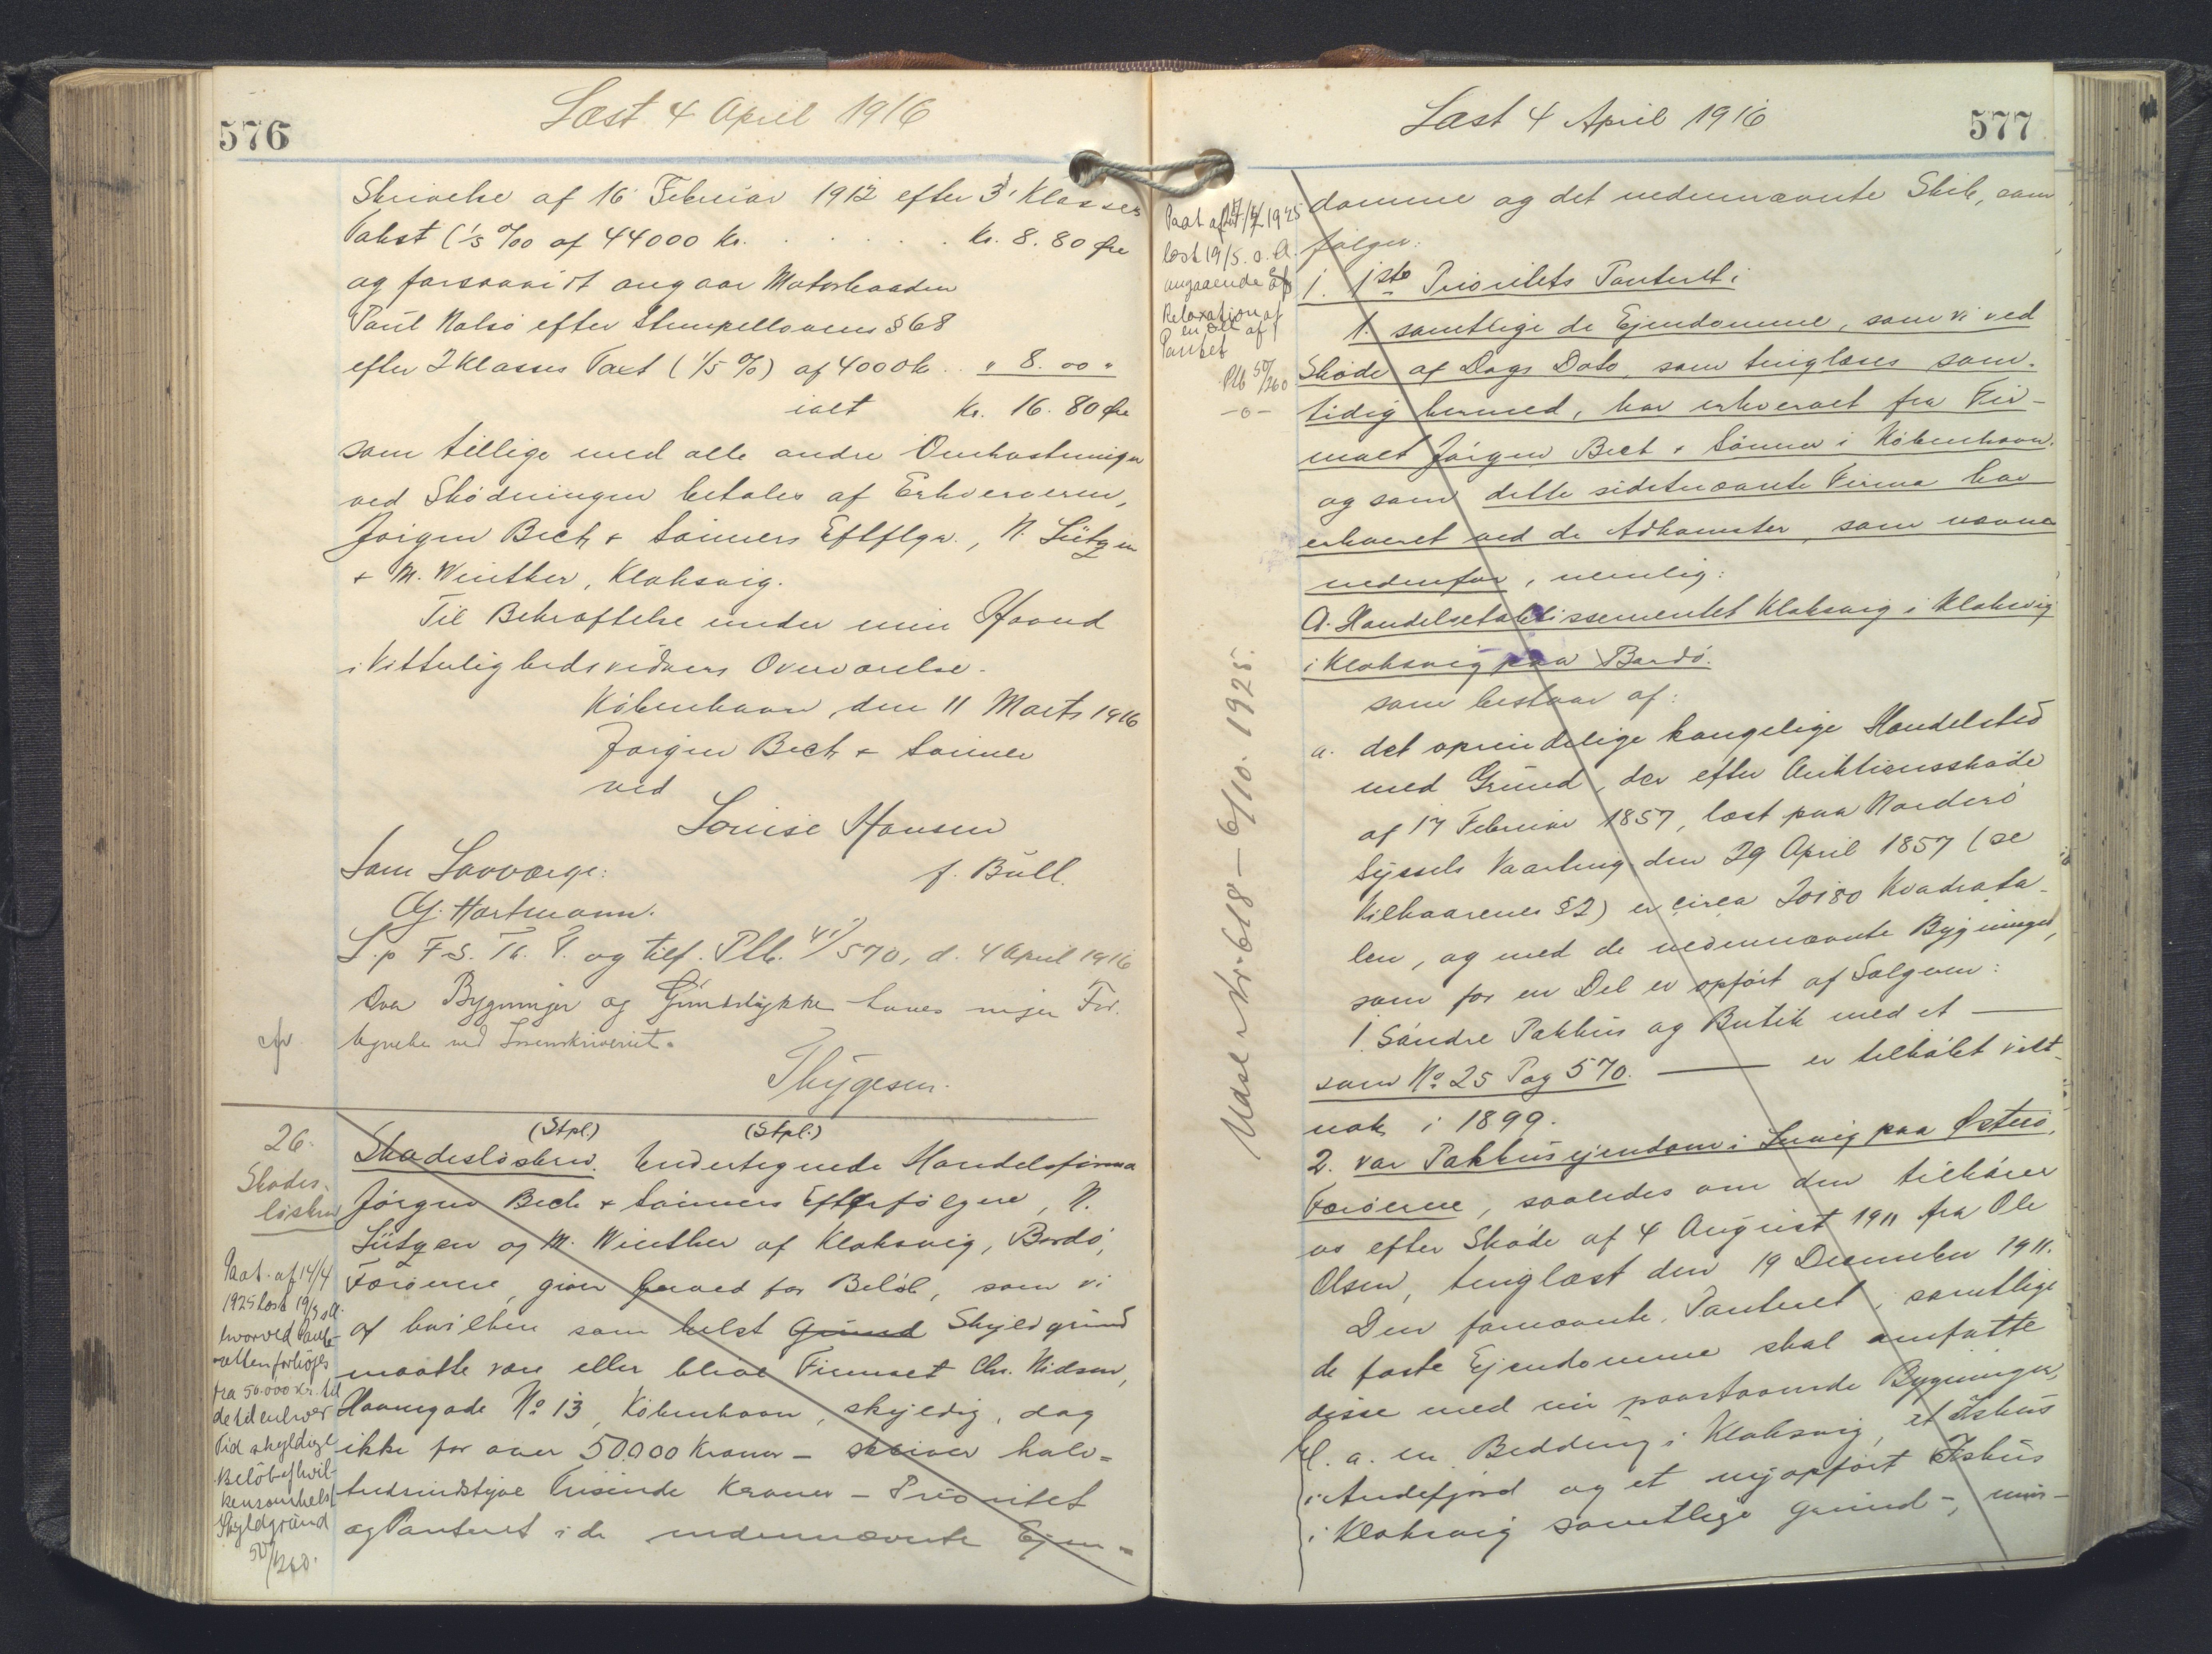 576
Læst 4 April 1916
Skrivelse af 16 Februar 1912 efter 3' Klasses
Takst (1/5 ‰ of 44000 Kr. . . . . . . Kr. 8. 80 Øre
og forsaavidt angaar Motorbaaden
Paul Nolsø efter Stempellovens § 68
efter 2 Klasses Taxt (1/5 %) af 4000 Kr. . " 8. 00 "
ialt Kr. 16. 80 Øre
som tillige med alle andre Omkostninger
ved Skødningen betales af Erhververen,
Jørgen Bech & Sønners Eftflgr., N. Lützen
& M. Winther, Klaksvig.
Til Bekræftelse under min Haand
i Vitterlighedsvidners Overværelse.
København, den 11 Marts 1916
Jørgen Bech & Sønner
ved
Louise Hansen
f. Bull.
Som Lavværge:
G. Hartmann.
L. p F. S. Th. P. og tilf. Plb. 41/570, d. 4 April 1916
Over Bygninger og Grundstykke haves ingen For-
tegnelse ved Sorenskriveriet.
Thygesen.
26.
Skades-
løsbrev
(Stpl.) (Stpl.)
Skadesløsbrev. Undertegnede Handelsfirma
Jørgen Bech & Sønners Efterfølgere, N.
Lützen og M. Winther af Klaksvig, Bordø,
Færøerne, giver herved for Beløb, som vi
af hvilken som helst Grund Skyldgrund
maatte være eller blive Firmaet Chr. Nielsen,
Havnegade No 13, København, skyldig, dog
ikke for over 50.000 Kroner – skriver halv-
tredsindstyve Tusinde Kroner – Prioritet
og Panteret i de nedennævnte Ejen-
Paat. af 14/4
1925 læst 19/5 s. A.
hvorved Pante-
retten forhøjes
fra 50.000 Kr. til
de til enhver
Tid skyldige
Beløb af hvil-
kensomhelst
Skyldgrund
50/260.
577
Læst 4 April 1916
Paat af 14/4 1925
læst 19/5. s. A.
angaaende
Relaxation af
en Del af
Pantet
Plb 50/260
-o-
Nr. 618 – 6/10. 1925.
domme og det nedennævnte Skib, som
følger:
1. 1ste Prioritets Panteret i
1. samtlige de Ejendomme, som vi ved
Skøde af Dags Dato, som tinglæses sam-
tidig hermed, har erhvervet fra Fir-
maet Jørgen Bech & Sønner i København.
og som dette sidstnævnte Firma har
erhvervet ved de Adkomster, som nævnes
nedenfor, nemlig:
A. Handelsetablissementet Klaksvig i Klaksvig
i Klaksvig paa Bordø.
som bestaar af:
a. det oprindelige kongelige Handelsted
med Grund, der efter Auktionsskøde
af 17 Februar 1857, læst paa Norderø
Syssels Vaarting den 29 April 1857 (se
Vilkaarenes § 2) er circa 20180 Kvadrata-
len, og med de nedennævnte Bygninger,
som for en Del er opført af Sælgeren:
1. Søndre Pakhus og Butik med et ——
som No 25 Pag 570. —— er tilkøbt vist-
nok i 1899.
2. vor Pakhusejendom i Lervig paa Østerø,
Færøerne, saaledes som den tilhører
os efter Skøde af 4 August 1911 fra Ole
Olsen, tinglæst den 19 December 1911.
Den fornævnte Panteret i samtlige
de faste Ejendomme skal omfatte
disse med nu paastaaende Bygninger,
bl. a. en Bedding i Klaksvig, et Ishus
i Andefjord og et nyopført Ishus
i Klaksvig samtlige grund-, mur-